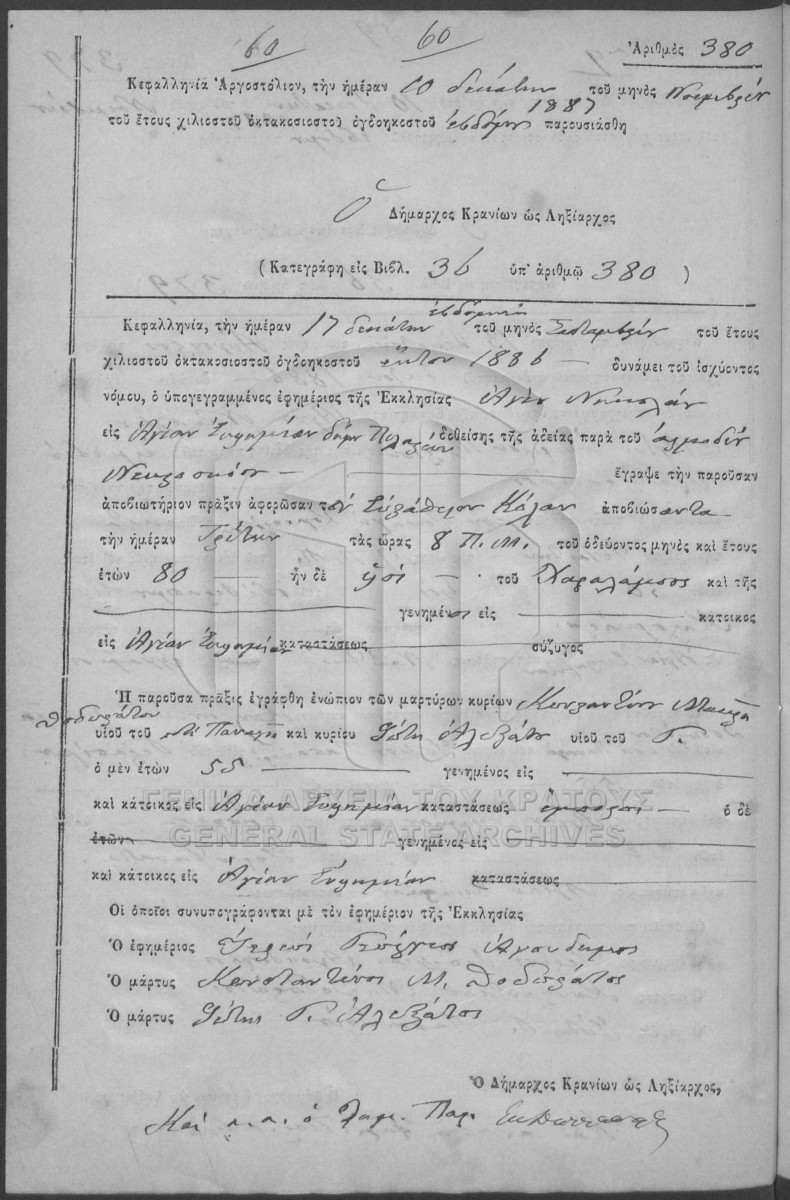 60 60
Ἀριθμὸς 380
Κεφαλληνία Ἀργοστόλιον, τὴν ἡμέραν 10 δεκάτην τοῦ μηνὸς Νοεμβρίου
1887
τοῦ ἔτους χιλιοστοῦ ὀκτακοσιοστοῦ ὀγδοηκοστοῦ ἑβδόμου παρουσιάσθη
Ὁ Δήμαρχος Κρανίων ὡς Ληξίαρχος
(Κατεγράφη εἰς Βιβλ. 36 ὑπ' ἀριθμῷ 380)
ἑβδόμην
Κεφαλληνία, τὴν ἡμέραν 17 δεκάτην τοῦ μηνὸς Σεπτεμβρίου τοῦ ἔτους
χιλιοστοῦ ὀκτακοσιοστοῦ ὀγδοηκοστοῦ ἕκτου 1886 — δυνάμει τοῦ ἰσχύοντος
νόμου, ὁ ὑπογεγραμμένος ἐφημέριος τῆς Ἐκκλησίας Ἁγίου Νικολάου
εἰς Ἁγίαν Εὐφημίαν δήμου Πυλαρέων δοθείσης τῆς ἀδείας παρὰ τοῦ
— ἔγραψε τὴν παροῦσαν
ἀποβιωτήριον πρᾶξιν ἀφορῶσαν τὸν Σπυράθυμον ἀποβιώσαντα
τὴν ἡμέραν Τρίτην τὰς ὥρας 8 Π.Μ. τοῦ ὁδεύοντος μηνὸς καὶ ἔτους
ἐτῶν 80 — ἦν δὲ υἱὸς — τοῦ Χαραλάμπους καὶ τῆς
— γενημένος εἰς — κάτοικος
εἰς Ἁγίαν Εὐφημίαν καταστάσεως — σύζυγος
Ἡ παροῦσα πρᾶξις ἐγράφθη ἐνώπιον τῶν μαρτύρων κυρίων Κωνσταντίνου
Θοδωράτου
υἱοῦ τοῦ ποτὲ Παναγῆ καὶ κυρίου Φώτη Ἀλεξάτου υἱοῦ τοῦ Γ.
ὁ μὲν ἐτῶν 55 — γενημένος εἰς —
καὶ κάτοικος εἰς Ἁγίαν Εὐφημίαν καταστάσεως ἔμποροι — ὁ δὲ
ἐτῶν — γενημένος εἰς —
καὶ κάτοικος εἰς Ἁγίαν Εὐφημίαν καταστάσεως —
Οἱ ὁποῖοι συνυπογράφονται μὲ τὸν ἐφημέριον τῆς Ἐκκλησίας
Ὁ ἐφημέριος Ἱερεὺς Γεώργιος
Ὁ μάρτυς Κωνσταντῖνος Μ. Θοδωράτος
Ὁ μάρτυς Φώτης Γ. Ἀλεξάτος
Ὁ Δήμαρχος Κρανίων ὡς Ληξίαρχος,
Καὶ ὁ
ΓΕΝΙΚΑ ΑΡΧΕΙΑ ΤΟΥ ΚΡΑΤΟΥΣ
GENERAL STATE ARCHIVES